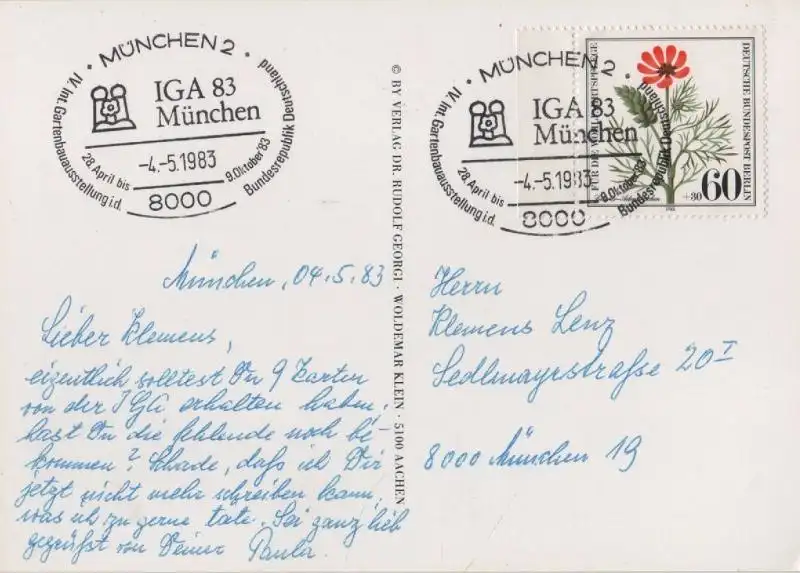 MÜNCHEN 2
IV. Int. Gartenbauausstellung i.d. Bundesrepublik Deutschland
IGA 83
München
28. April bis 9. Oktober '83
-4.-5.1983
8000
MÜNCHEN 2
IV. Int. Gartenbauausstellung i.d. Bundesrepublik Deutschland
IGA 83
München
28. April bis 9. Oktober '83
-4.-5.1983
8000
FÜR DIE WOHLFAHRTSPFLEGE
DEUTSCHE BUNDESPOST BERLIN
+30 60
© BY VERLAG DR. RUDOLF GEORGI · WOLDEMAR KLEIN · 5100 AACHEN
München, 04.5.83
Lieber Klemens,
eigentlich solltest Du 9 Karten
von der IGA erhalten haben,
hast Du die fehlende noch be-
kommen? Schade, daß ich Dir
jetzt nicht mehr schreiben kann,
was ich zu gerne täte. Sei ganz lieb
gegrüßt von Deiner Paula.
Herrn
Klemens Lenz
Sedlmayrstraße 20 I
8000 München 19